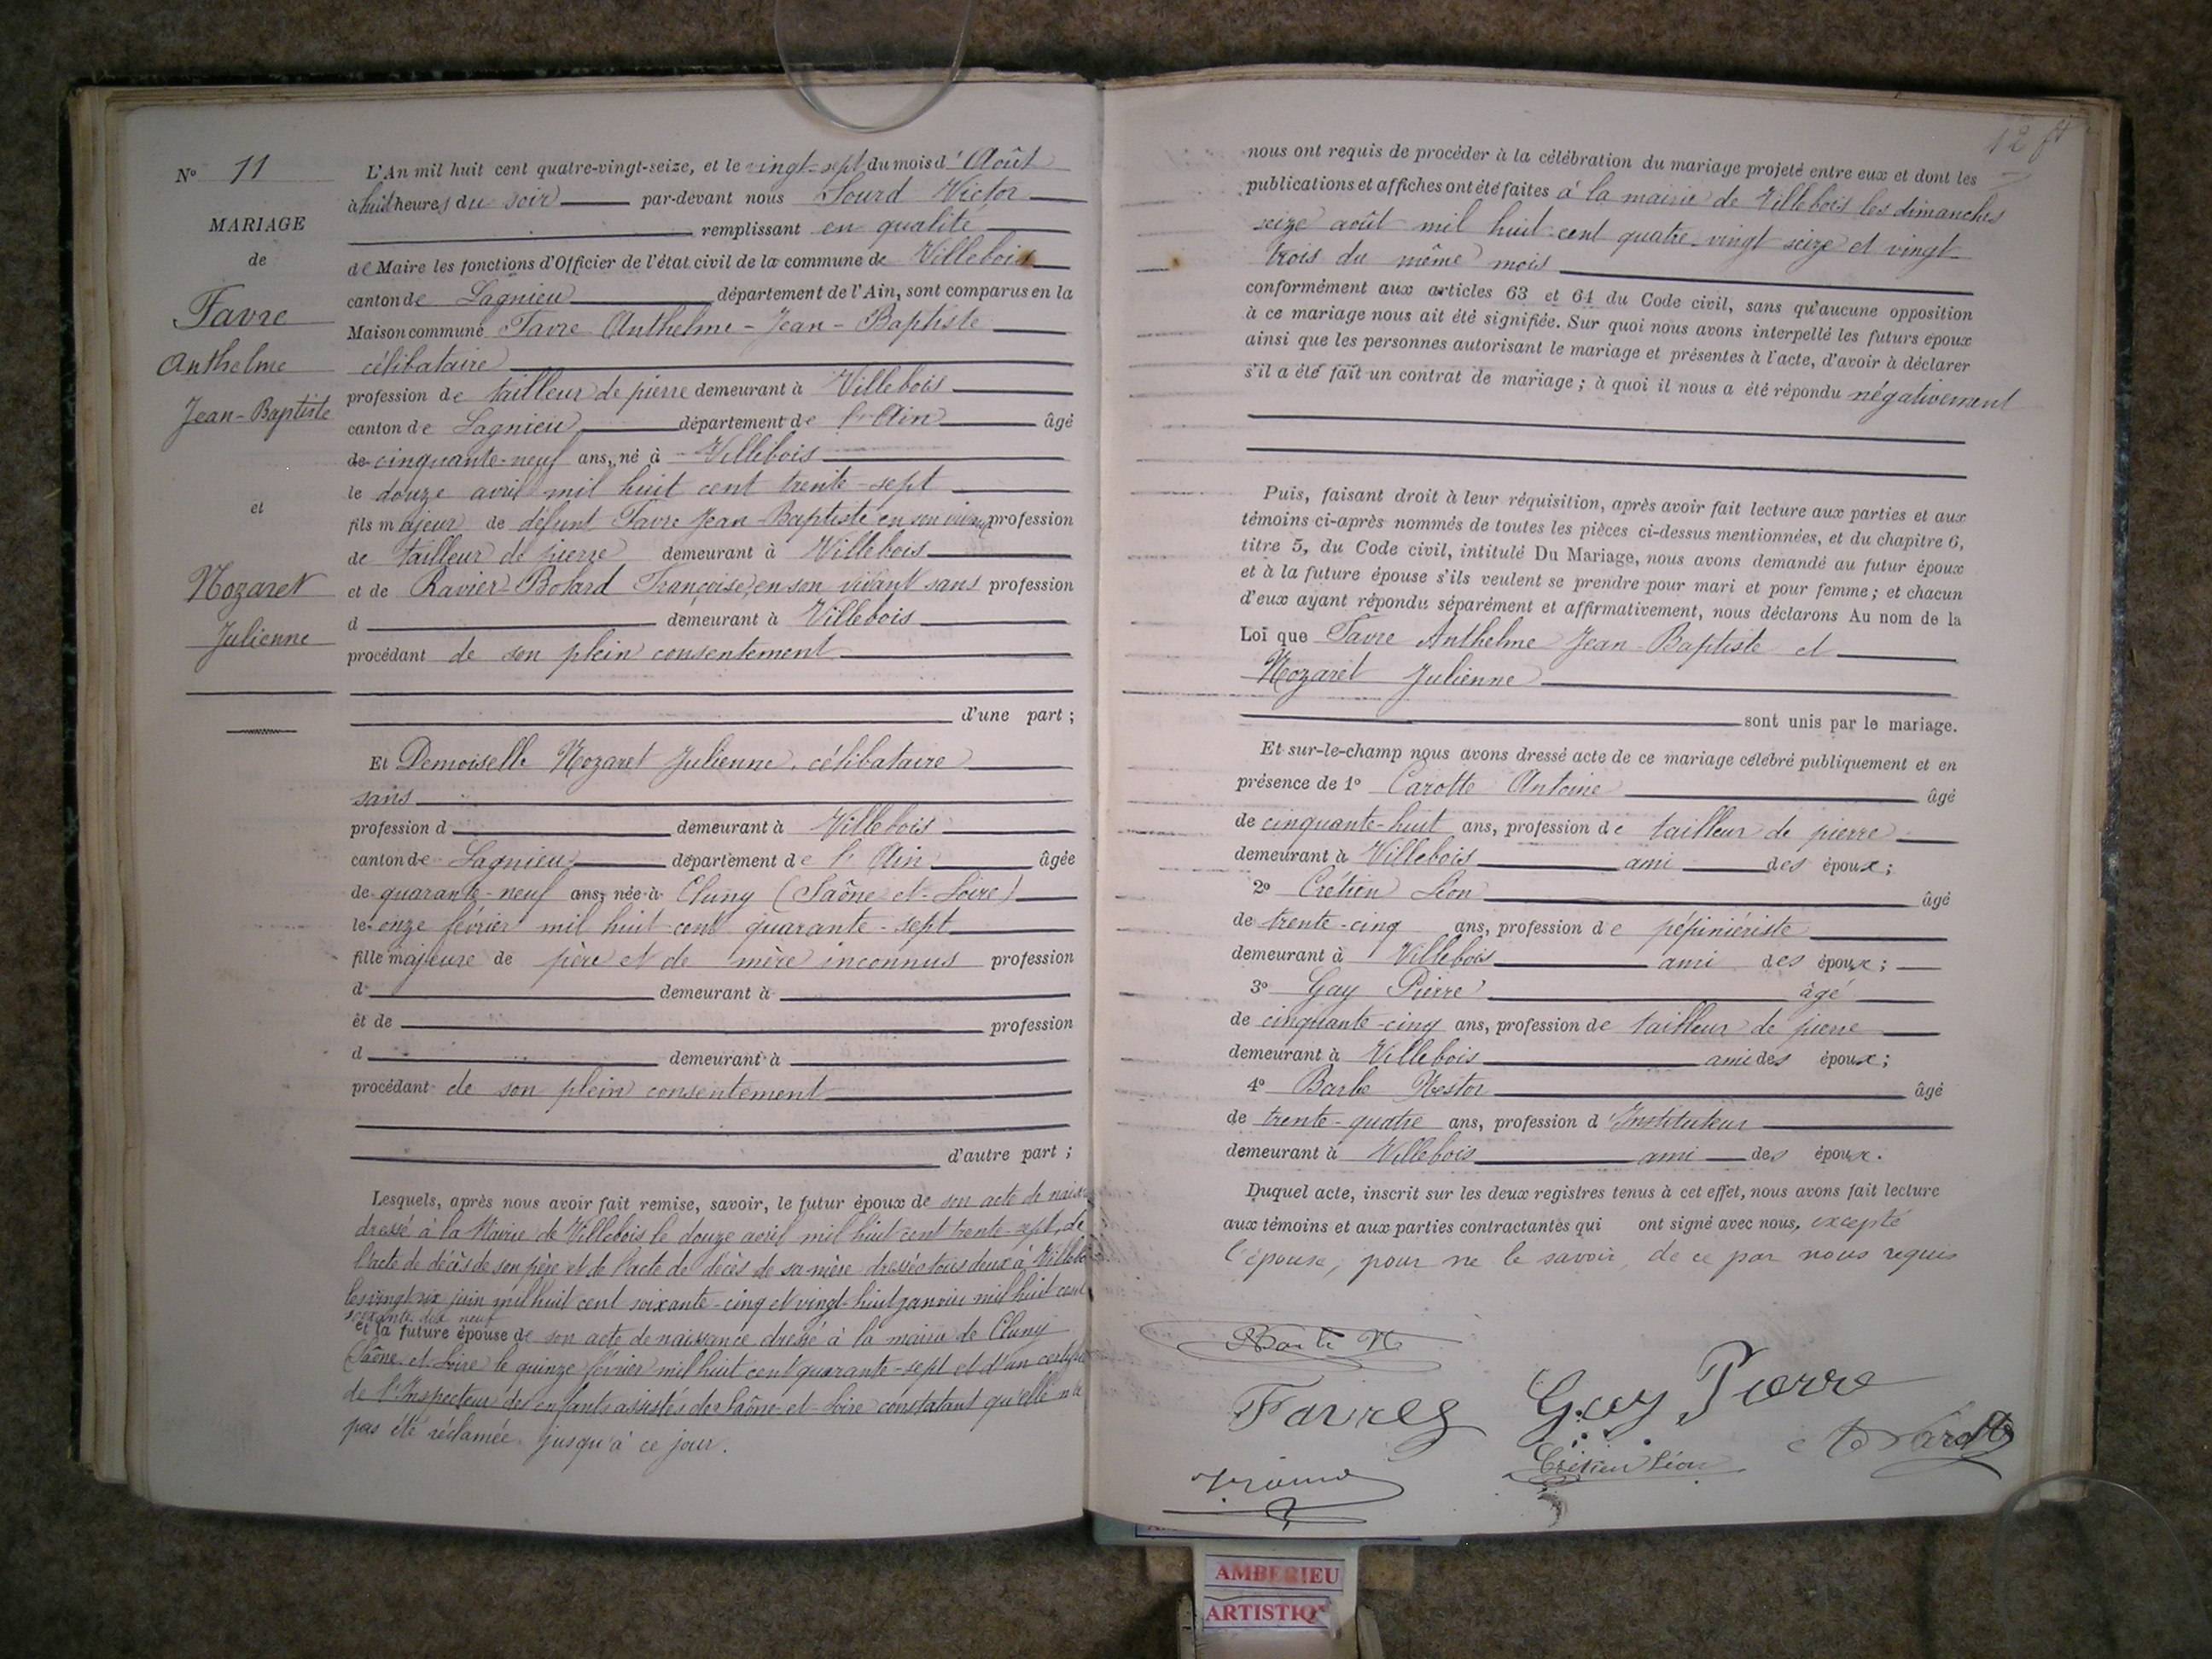 N° 11
MARIAGE
de
Favre
Anthelme
Jean-Baptiste
et
Nozaret
Julienne
L'An mil huit cent quatre-vingt-seize, et le vingt-sept du mois d'Août
à huit heures du soir par-devant nous Sourd Victor
remplissant en qualité
de Maire les fonctions d'Officier de l'état civil de la commune de Villebois
canton de Lagnieu département de l'Ain, sont comparus en la
Maison commune Favre Anthelme-Jean-Baptiste
célibataire
profession de tailleur de pierre demeurant à Villebois
canton de Lagnieu département de l'Ain âgé
de cinquante-neuf ans, né à Villebois
le douze avril mil huit cent trente-sept
fils majeur de défunt Favre Jean-Baptiste en son vivant profession
de tailleur de pierre demeurant à Villebois
et de Ravier-Bolard Françoise, en son vivant sans profession
d demeurant à Villebois
procédant de son plein consentement
d'une part ;
Et Demoiselle Nozaret Julienne, célibataire
sans
profession d demeurant à Villebois
canton de Lagnieu département de l'Ain âgée
de quarante-neuf ans, née à Cluny (Saône-et-Loire)
le onze février mil huit cent quarante-sept
fille majeure de père et de mère inconnus profession
d demeurant à
et de profession
d demeurant à
procédant de son plein consentement
d'autre part ;
Lesquels, après nous avoir fait remise, savoir, le futur époux de son acte de naiss
dressé à la Mairie de Villebois le douze avril mil huit cent trente-sept, de
l'acte de décès de son père et de l'acte de décès de sa mère dressés tous deux à Villebois
les vingt six juin mil huit cent soixante-cinq et vingt-huit janvier mil huit cent
soixante dix neuf
et la future épouse de son acte de naissance dressé à la mairie de Cluny
(Saône-et-Loire) le quinze février mil huit cent quarante-sept et d'un certificat
de l'Inspecteur des enfants assistés de Saône-et-Loire constatant qu'elle n'a
pas été réclamée jusqu'à ce jour.
12
nous ont requis de procéder à la célébration du mariage projeté entre eux et dont les
publications et affiches ont été faites à la mairie de Villebois les dimanches
seize août mil huit cent quatre-vingt seize et vingt-
trois du même mois
conformément aux articles 63 et 64 du Code civil, sans qu'aucune opposition
à ce mariage nous ait été signifiée. Sur quoi nous avons interpellé les futurs époux
ainsi que les personnes autorisant le mariage et présentes à l'acte, d'avoir à déclarer
s'il a été fait un contrat de mariage ; à quoi il nous a été répondu négativement
Puis, faisant droit à leur réquisition, après avoir fait lecture aux parties et aux
témoins ci-après nommés de toutes les pièces ci-dessus mentionnées, et du chapitre 6,
titre 5, du Code civil, intitulé Du Mariage, nous avons demandé au futur époux
et à la future épouse s'ils veulent se prendre pour mari et pour femme ; et chacun
d'eux ayant répondu séparément et affirmativement, nous déclarons Au nom de la
Loi que Favre Anthelme Jean-Baptiste et
Nozaret Julienne
sont unis par le mariage.
Et sur-le-champ nous avons dressé acte de ce mariage célébré publiquement et en
présence de 1° Carotte Antoine âgé
de cinquante-huit ans, profession de tailleur de pierre
demeurant à Villebois ami des époux ;
2° Cretien Léon âgé
de trente-cinq ans, profession de pépiniériste
demeurant à Villebois ami des époux ;
3° Gay Pierre âgé
de cinquante-cinq ans, profession de tailleur de pierre
demeurant à Villebois ami des époux ;
4° Barbe Nestor âgé
de trente-quatre ans, profession d'Instituteur
demeurant à Villebois ami des époux.
Duquel acte, inscrit sur les deux registres tenus à cet effet, nous avons fait lecture
aux témoins et aux parties contractantes qui ont signé avec nous, excepté
l'épouse, pour ne le savoir, de ce par nous requis
Favre
Gay Pierre
Cretien Léon
AMBERIEU
ARTISTIQ